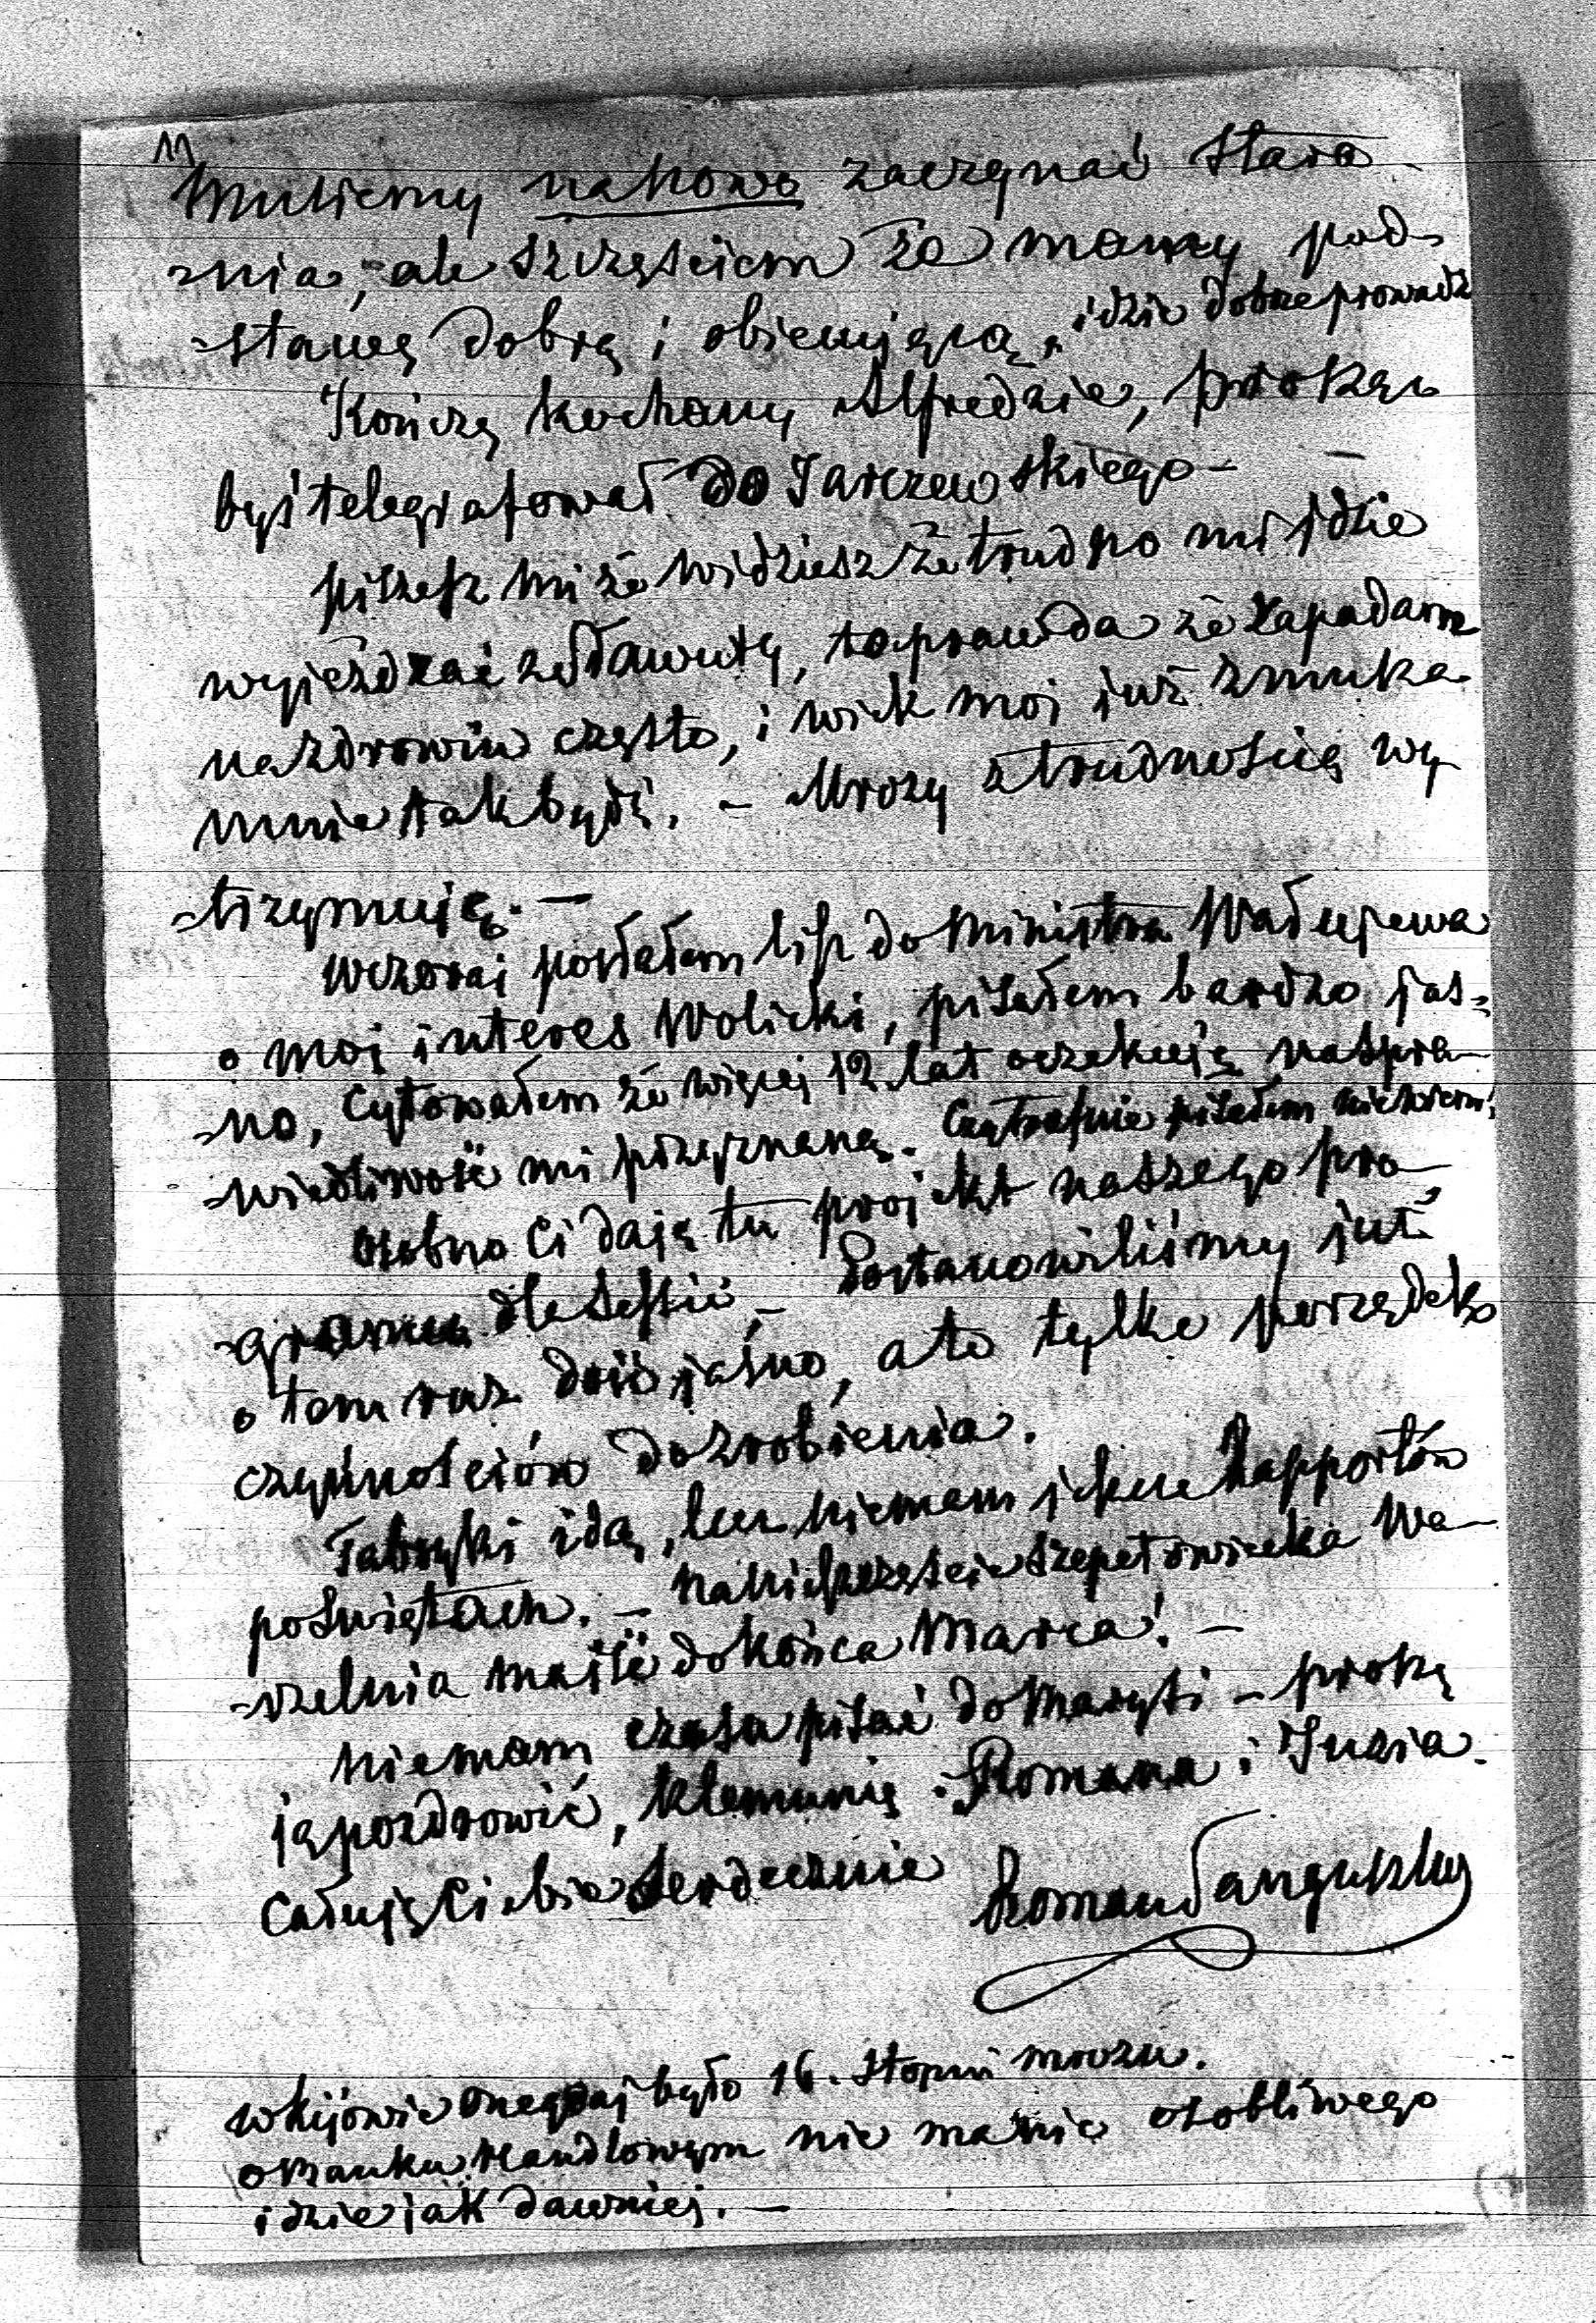 11
Musiemy nanowo zaczynać stara-
-nia, ale szczęściem że mamy pod-
-stawę dobrą i obiecującą, idzie dobrze prowadz
Kończę kochany Alfredzie, proszę
byś telegrafował do Jarczewskiego —
piszesz mi że widzisz że trudno mi jdzie
wyjeżdżać ze Sławuty, to prawda że zapadam
na zdrowiu często, i wiek moj już zmusza
mnie tak bydź. – Mrozy z trudnością wy-
-trzymuję. —
Wczoraj posłałem list do Ministra Wałujewa
o moj interes Wolicki, pisałem bardzo jas-
-no, cytowałem że więcej 12 lat oczekuję na spra-
-wiedliwość mi przyznaną. Czy trafnie pisałem nie wiem.
Osobno Ci daję tu projekt naszego pro-
-gramu dla – Postanowiliśmy już
o tem raz dość jasno, a to tylko porządek
czynnościów do zrobienia.
Fabryki idą, lecz niemam jeszcze Rapportów
po Świętach. – Na nieszczęście Szepetowiecka Wa-
-rzelnia maść do końca Marca! –
niemam czasu pisać do Marysi – proszę
ją pozdrowić, Klemunię Romana i Juzia.
Całuję Ciebie Serdecznie Roman Sanguszko
w Kijowie onegdaj było 16. stopni mrozu.
o Banku Handlowym nic ma nic osobliwego
idzie jak dawniej. —